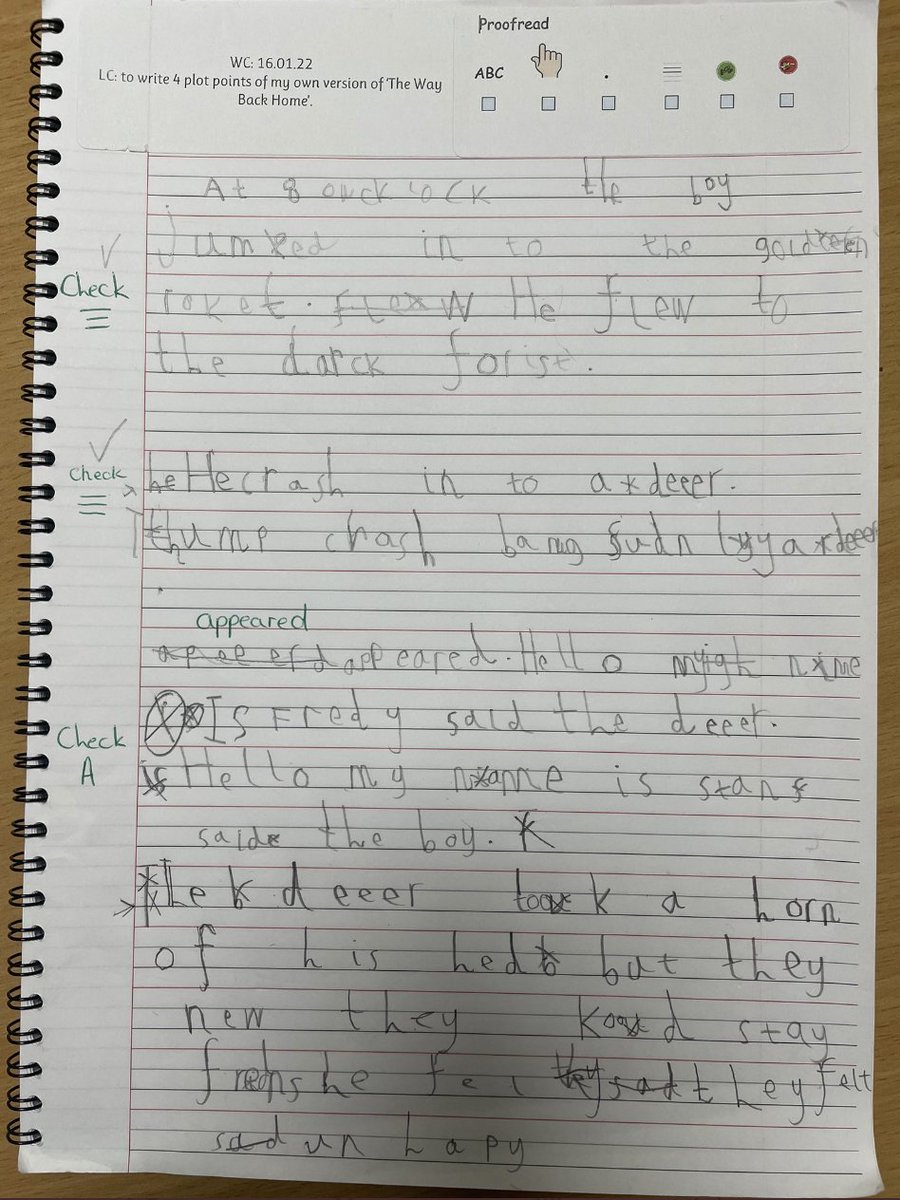 Proofread
WC: 16.01.22
LC: to write 4 plot points of my own version of 'The Way
Back Home'.
ABC
At 8 ouck lock the boy
jumped in to the gold
Check
roket. flew He flew to
the darck forist.
Check
he He crash in to a deeer.
Thump chash bang sudnly a deeer
appeared
appeared. Hello migh nime
Check
A
Is Fredy said the deeer.
Hello my name is stan
said the boy.
The deeer took a horn
of his hed but they
new they kod stay
frens he fel they sad they felt
sad un hapy